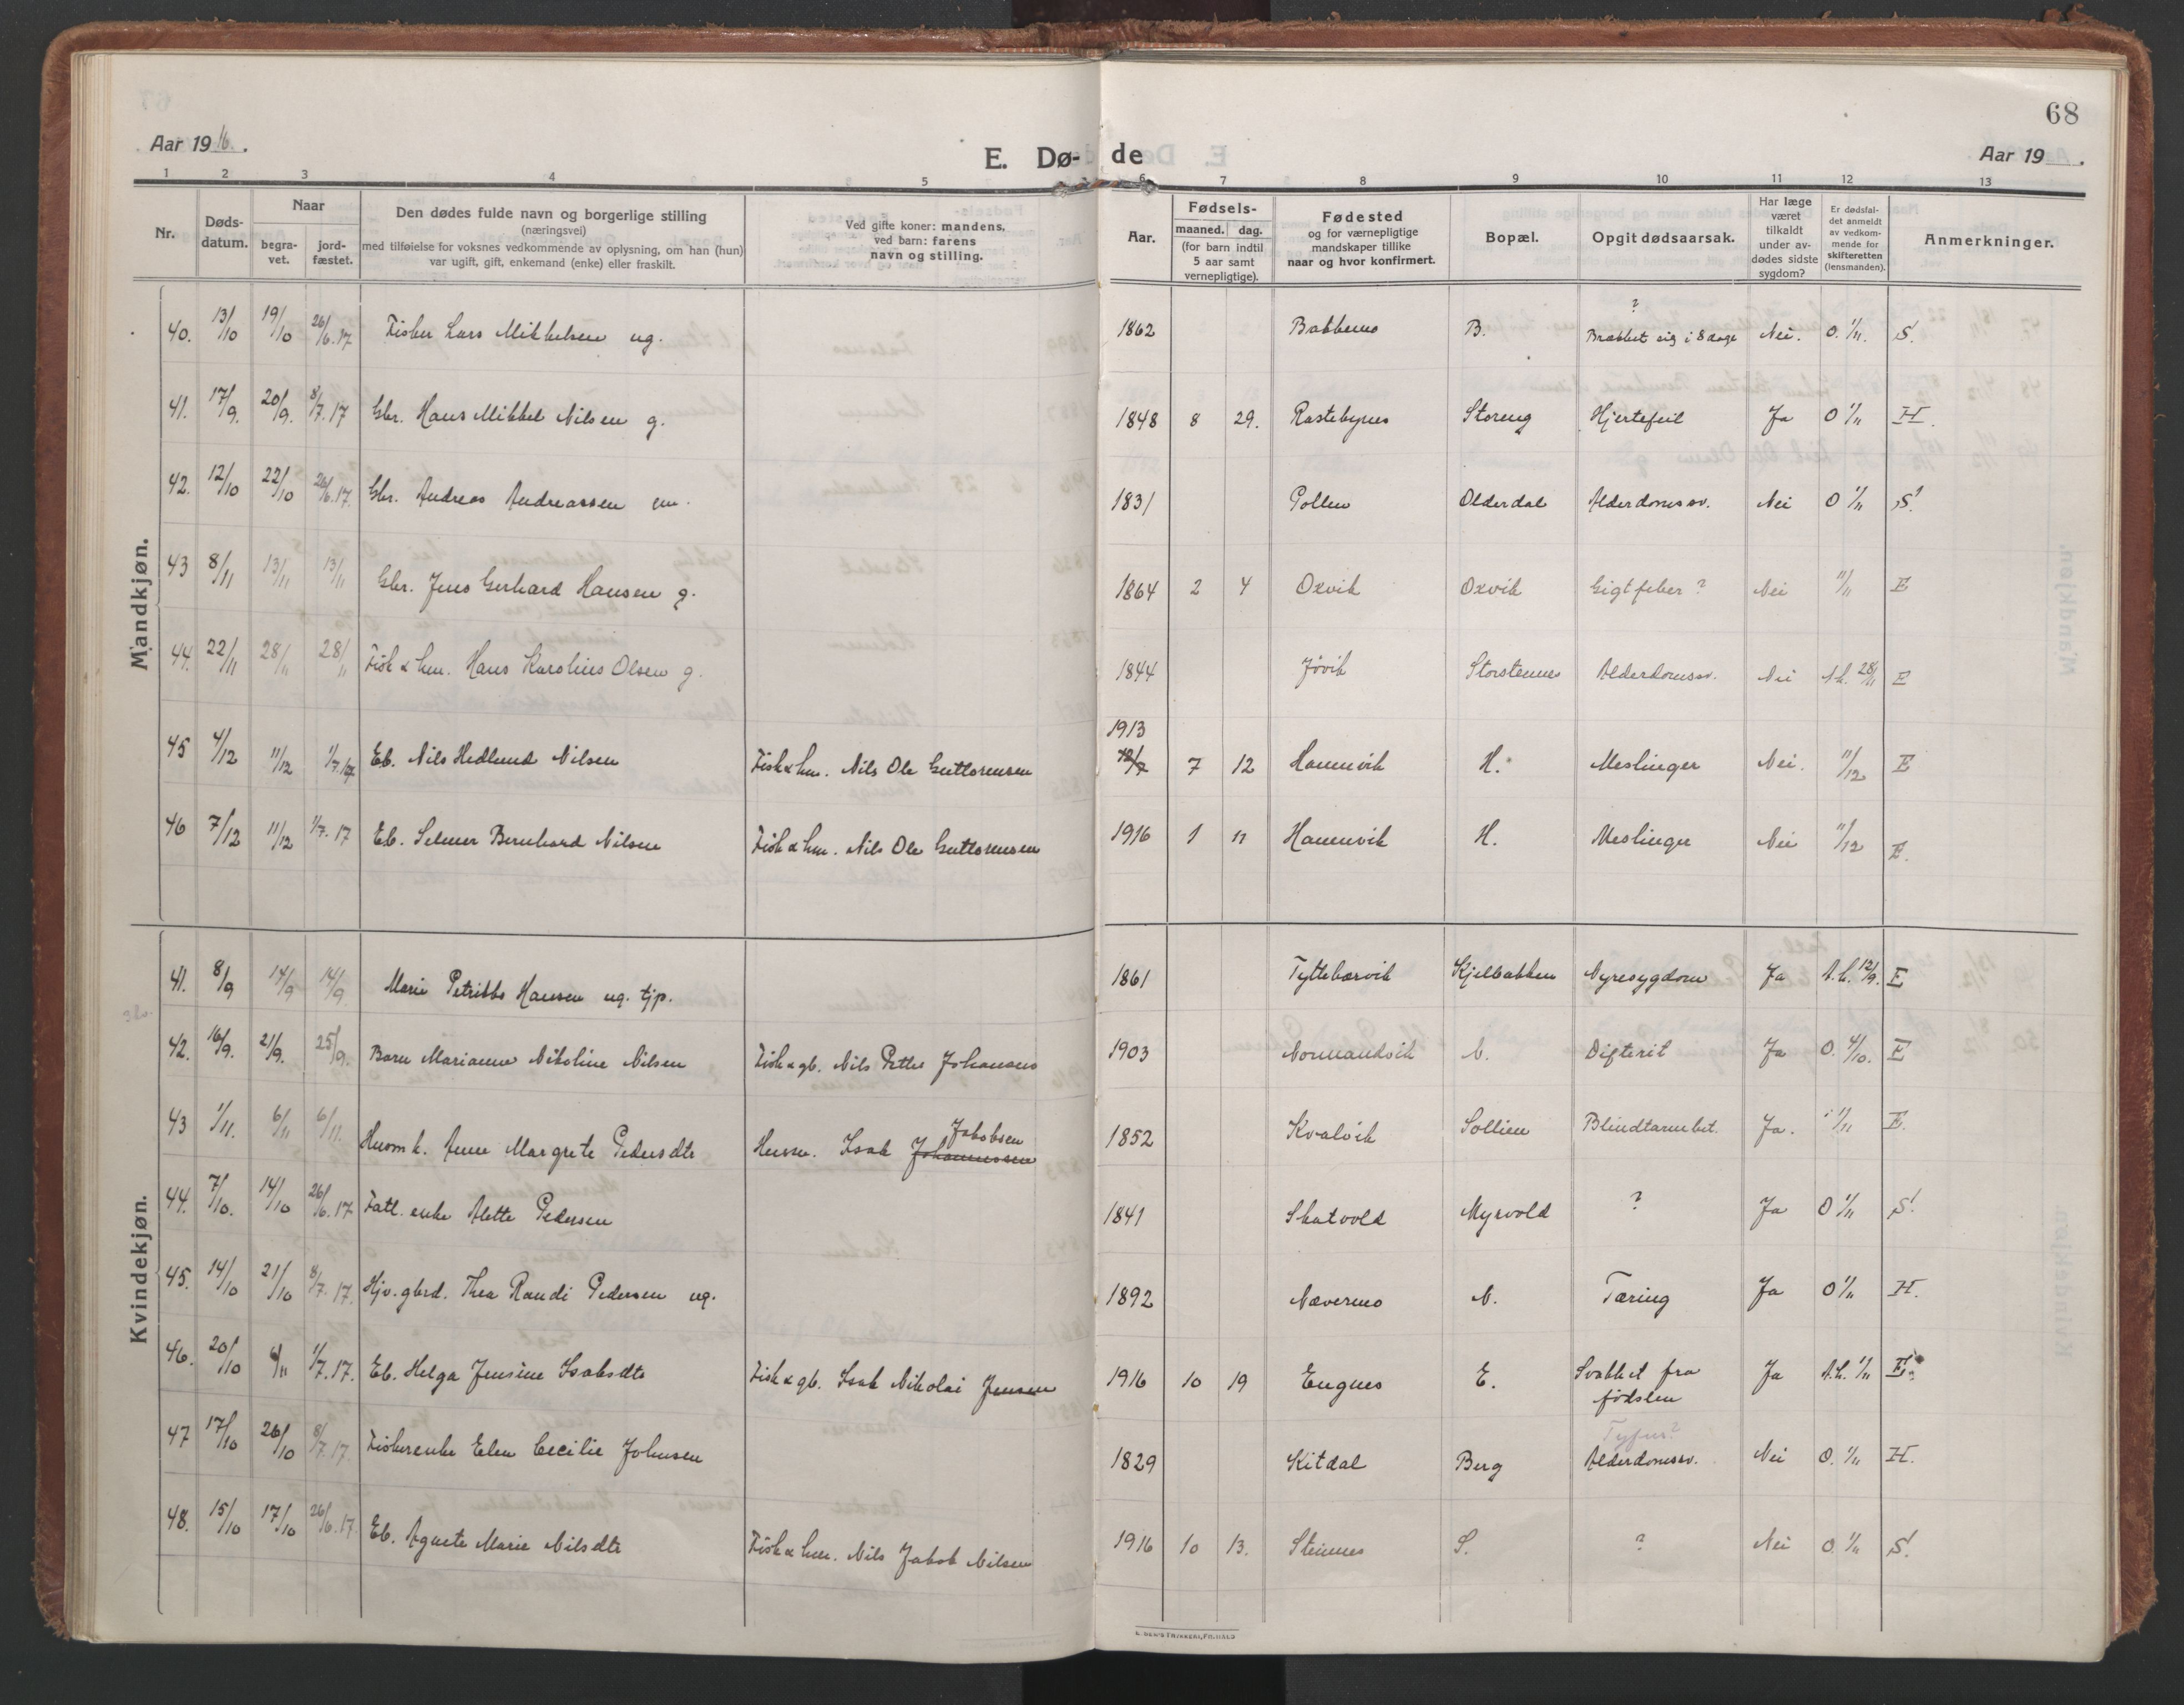 68
Aar 1916.
E. Døde
Aar 19 .
1 2 3 4 5 6 7 8 9 10 11 12 13
Nr.
Døds-
datum.
Naar
begra-
vet.
jord-
fæstet.
Den dødes fulde navn og borgerlige stilling
(næringsvei)
med tilføielse for voksnes vedkommende av oplysning, om han (hun)
var ugift, gift, enkemand (enke) eller fraskilt.
Ved gifte koner: mandens,
ved barn: farens
navn og stilling.
Aar.
Fødsels-
maaned. dag.
(for barn indtil
5 aar samt
vernepligtige).
Fødested
og for værnepligtige
mandskaper tillike
naar og hvor konfirmert.
Bopæl.
Opgit dødsaarsak.
Har læge
været
tilkaldt
under av-
dødes sidste
sygdom?
Er dødsfal-
det anmeldt
av vedkom-
mende for
skifteretten
(lensmanden).
Anmerkninger.
Mandkjøn.
40. 13/10 19/10 26/6.17 Fisker Lars Mikkelsen ug. 1862 Bakkemo B. ? Brækket sig i 8 dage Nei. O. 1/11. S.
41. 17/9. 20/9. 8/7.17 Gbr. Hans Mikkel Nilsen g. 1848 8 29. Rastebynes Storeng Hjertefeil Ja O 1/11 H.
42. 12/10 22/10 26/6.17. Gbr. Andreas Andreassen em. 1831 Pollen Olderdal Alderdomssv. Nei O 1/11 S.
43 8/11 13/11 13/11 Gbr. Jens Gerhard Hansen g. 1864 2 4 Oxvik Oxvik Gigtfeber? Nei 11/11 E
44. 22/11 28/11 28/11 Fisk & hm. Hans Karolius Olsen g. 1844 Jøvik Storstennes Alderdomssv. Nei A.h. 28/11 E
45 4/12 11/12 1/7.17 Eb. Nils Hedlund Nilsen Fisk & hm. Nils Ole Guttormsen 1913 12/7 7 12 Hamnvik H. Meslinger Nei. 11/12 E
46 7/12 11/12 1/7.17 Eb. Selmer Bernhard Nilsen Fisk & hm. Nils Ole Guttormsen 1916 1 11 Hamnvik H. Meslinger Nei 11/12 E.
Kvindekjøn.
41. 8/9 14/9 14/9 Marie Petrikke Hansen ug. tjp. 1861 Tyttebærvik Kjelbakken Nyresygdom Ja A.h. 12/9. E
42. 16/9. 21/9. 25/9. Barn Marianne Nikoline Nilsen Fisk & gb. Nils Petter Johansens 1903 Normandvik N. Difterit Ja O. 4/10. E
43 1/11. 6/11 6/11. Husm k. Anne Margrete Pedersdtr Husm. Isak Johannessen Jakobsen 1852 Kvalvik Sollien Blindtarmbet. Ja. 1/11 E.
44. 7/10. 14/10 26/6.17 Fatl. enke Alette Pedersen 1841 Skatvold Myrvold ? Ja O 1/11 S.
45. 14/10 21/10 8/7.17. Hjv. gbrd. Thea Randi Pedersen ug. 1892 Nævernes N. Tæring Ja O 1/11 H.
46. 20/10 1/7.17. Eb. Helga Jensine Isaksdtr Fisk & gb. Isak Nikolai Jensen 1916 10 19 Engnes E. Svakket fra fødslen Ja A.h. 1/11 E.
47 17/10 26/10 8/7.17. Fiskerenke Elen Cecilie Johnsen 1829 Kitdal Berg Tyfus? Alderdomssv. Nei O. 1/11 H.
48. 15/10 17/10 26/6.17. Eb. Agnete Marie Nilsdtr Fisk & hm. Nils Jakob Nilsen 1916 10 13. Steinnes S. ? Nei O. 1/11 S.